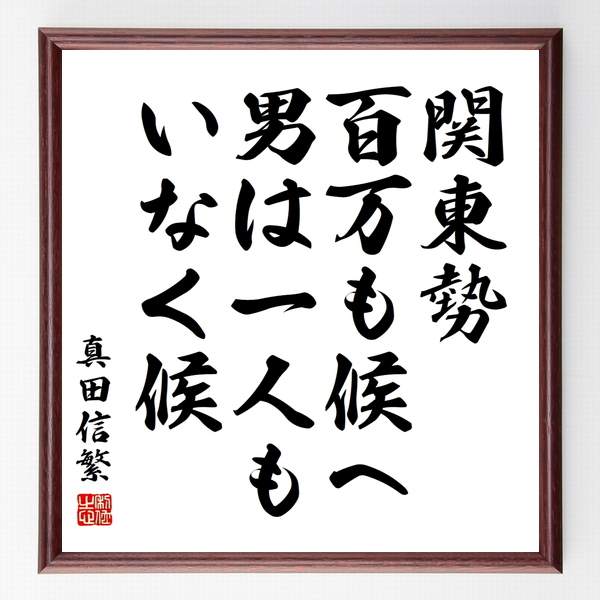 関東勢
百万も候へ
男は一人も
いなく候
真田信繁